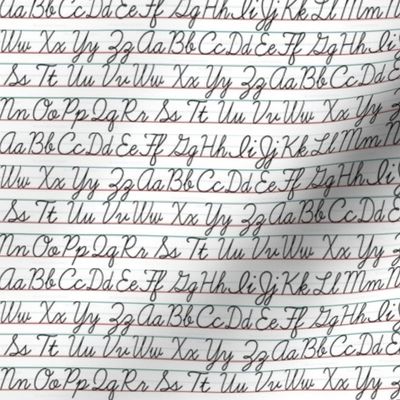 Aa Bb Cc Dd Ee Ff Gg Hh Ii Jj Kk Ll Mm
Ww Xx Yy Zz Aa Bb Cc Dd Ee Ff Gg
Ss Tt Uu Vv Ww Xx Yy Zz Aa Bb Cc
Nn Oo Pp Qq Rr Ss Tt Uu Vv Ww Xx Yy
Aa Bb Cc Dd Ee Ff Gg Hh Ii Jj Kk Ll Mm
Ww Xx Yy Zz Aa Bb Cc Dd Ee Ff Gg Hh
Ss Tt Uu Vv Ww Xx Yy Zz Aa Bb Cc Dd
Nn Oo Pp Qq Rr Ss Tt Uu Vv Ww Xx Yy Zz
Aa Bb Cc Dd Ee Ff Gg Hh Ii Jj Kk Ll Mm
Ww Xx Yy Zz Aa Bb Cc Dd Ee Ff Gg Hh
Ss Tt Uu Vv Ww Xx Yy Zz Aa Bb Cc Dd
Nn Oo Pp Qq Rr Ss Tt Uu Vv Ww Xx Yy